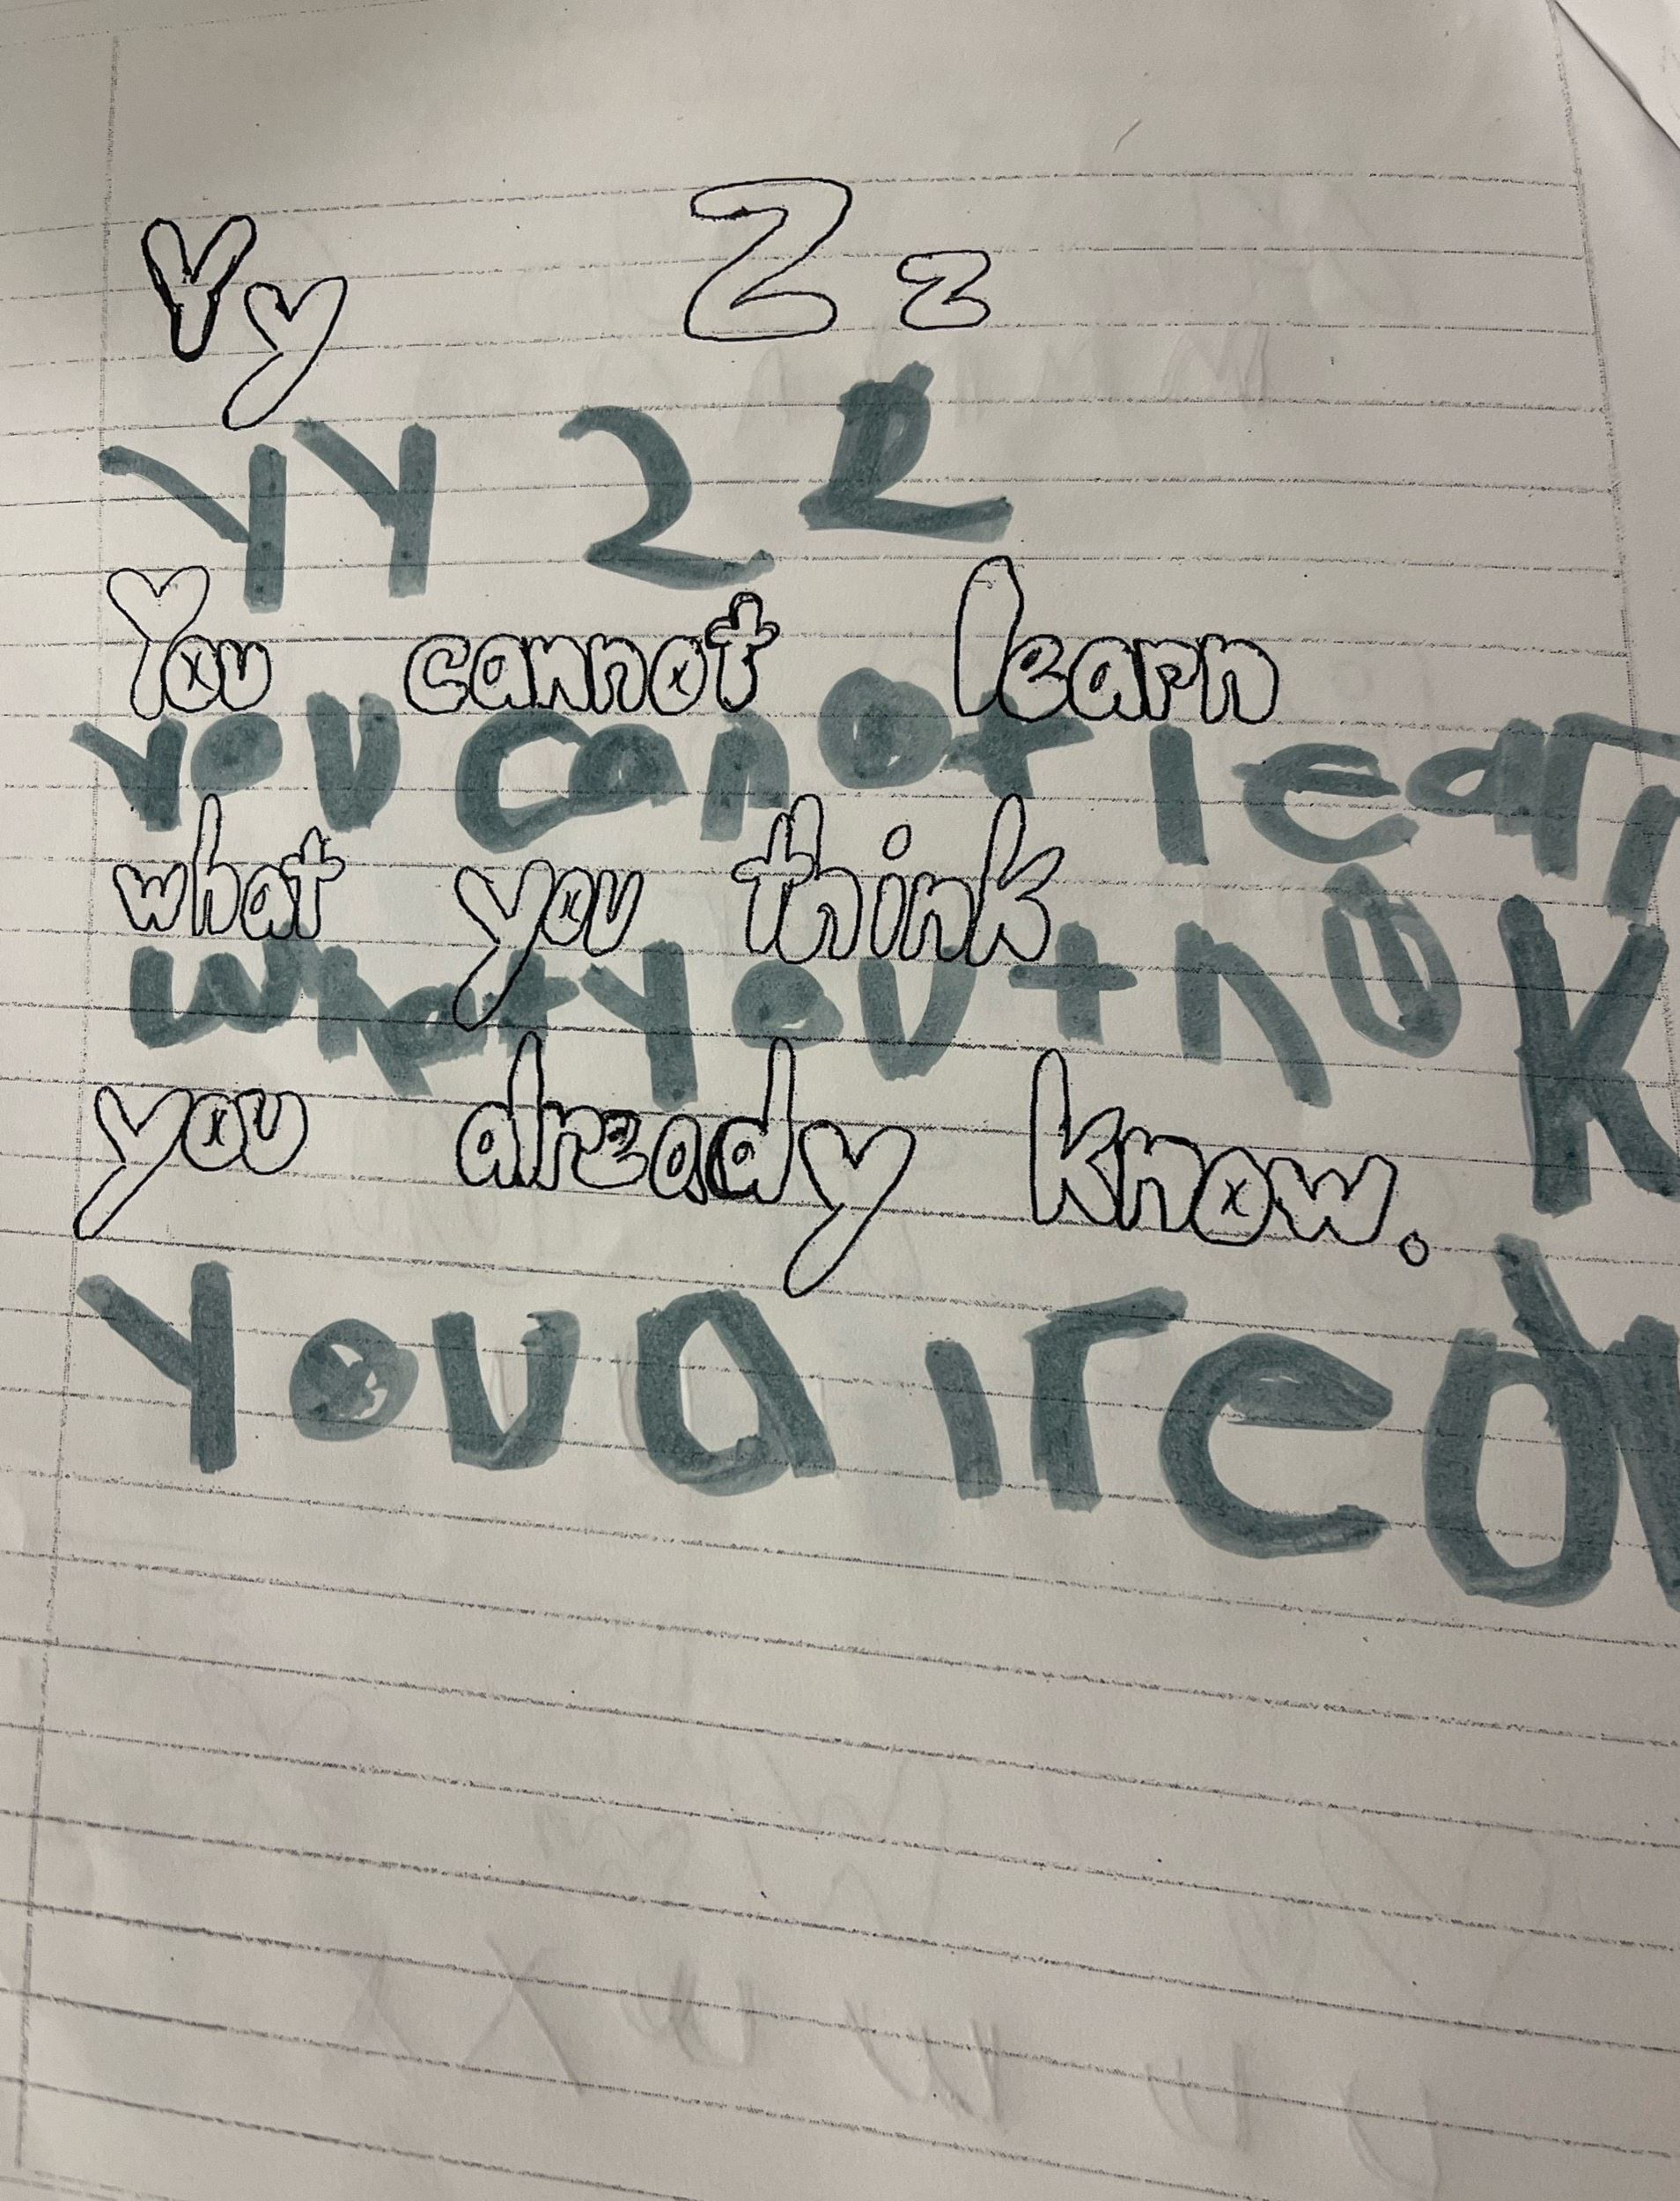 Yy Zz
YY 2 Z
You cannot learn
you canot lear
what you think
what you think
you already know.
you alread